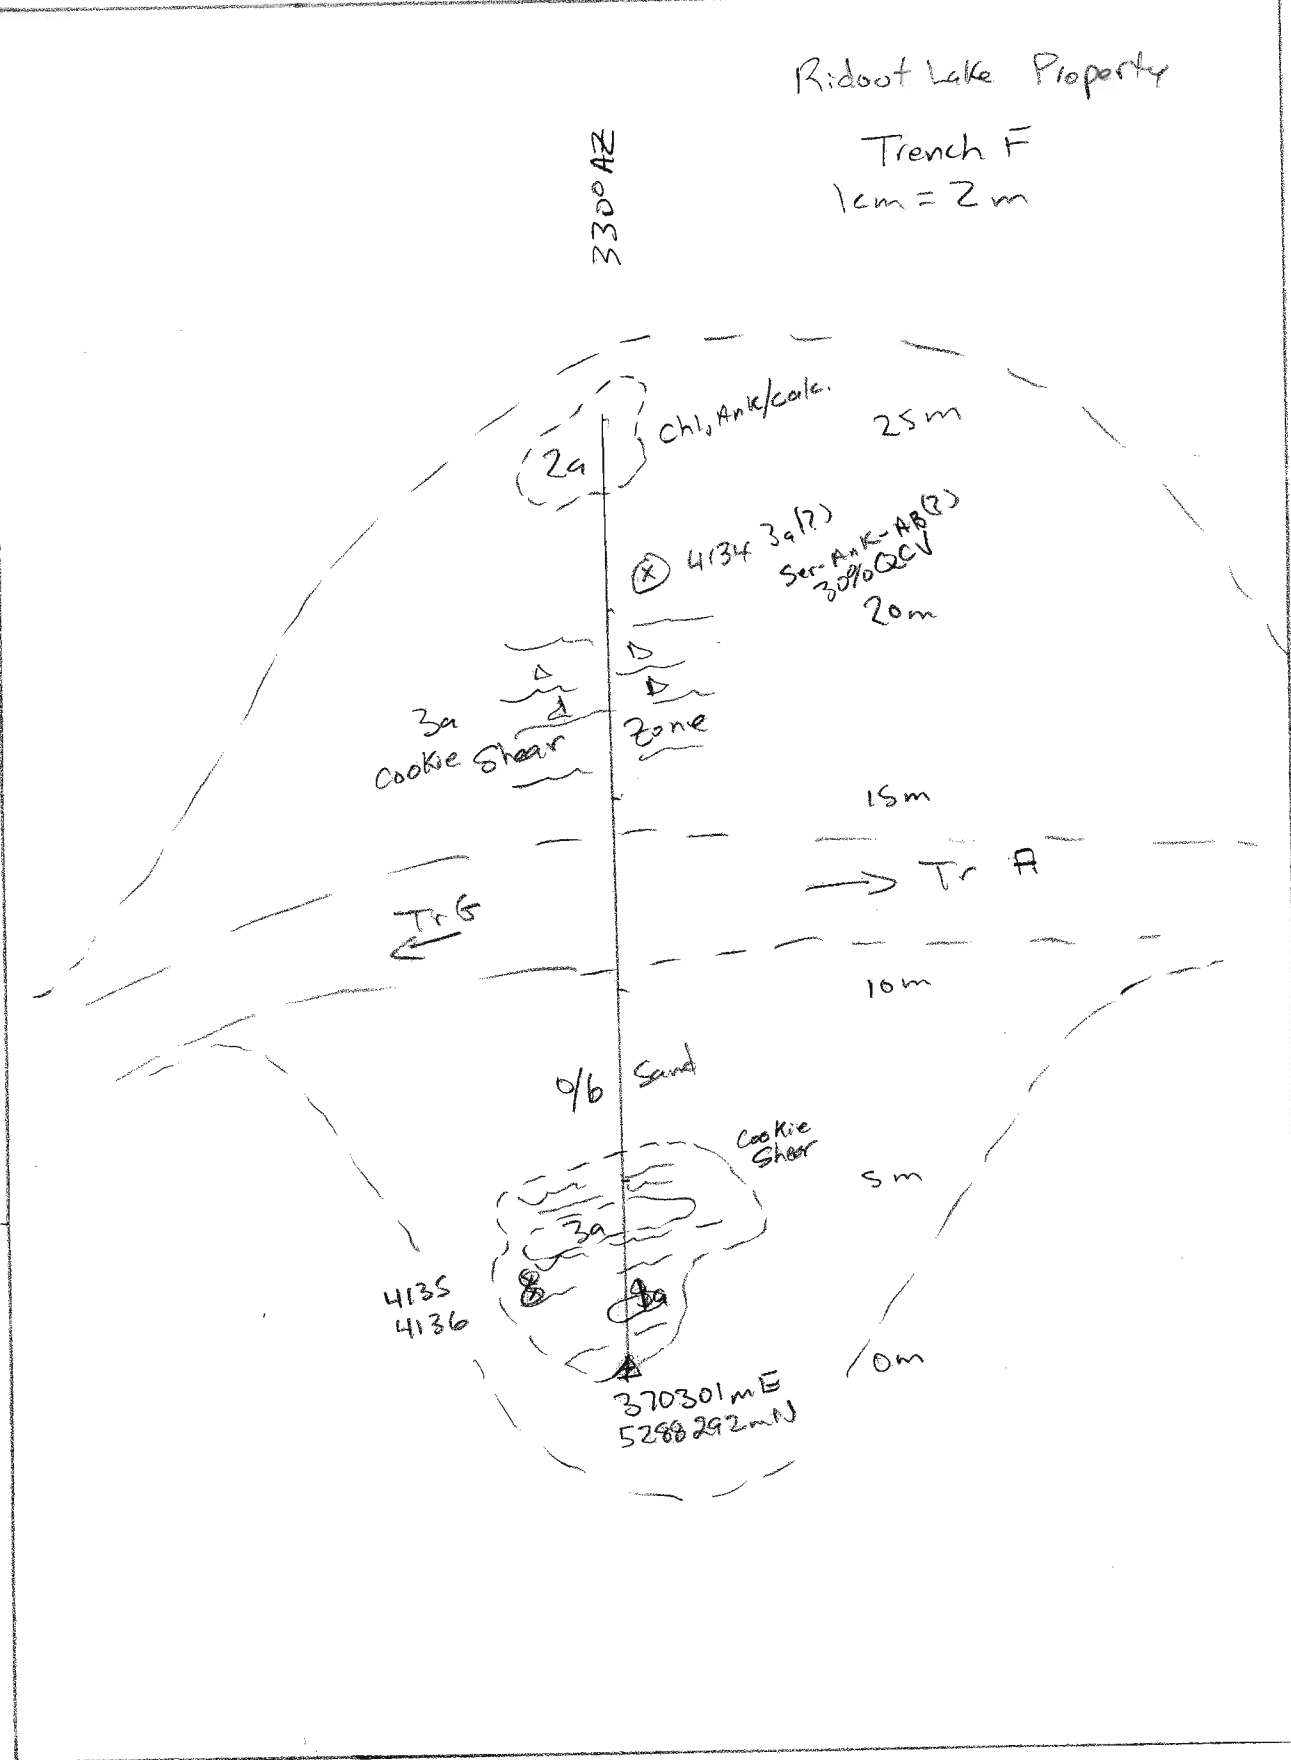 Ridout Lake Property
Trench F
1cm = 2m
330° AZ
Chl, Ank/calc.
25m
2a
4134 3a(?)
Ser-Ank-AB(?)
30% QCV
20m
3a
Cookie Shear Zone
15m
Tr A
Tr G
10m
o/b Sand
Cookie
Shear
5m
3a
8
4135
4136
0m
370301mE
5288292mN